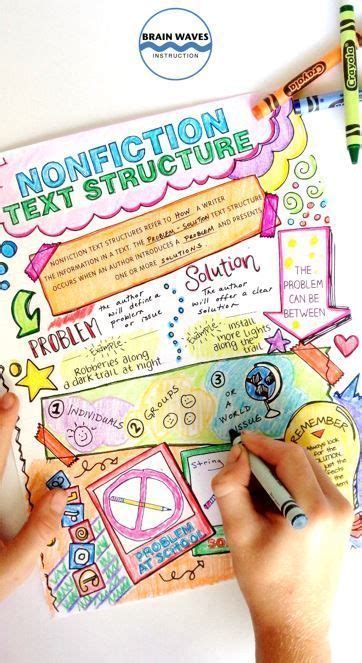 BRAIN WAVES
INSTRUCTION
Crayola
Crayola
NONFICTION
TEXT STRUCTURE
NONFICTION TEXT STRUCTURES REFER TO HOW A WRITER
THE INFORMATION IN A TEXT. THE PROBLEM-SOLUTION TEXT STRUCTURE
OCCURS WHEN AN AUTHOR INTRODUCES A PROBLEM AND PRESENTS
ONE OR MORE SOLUTIONS
PROBLEM
the author
will define a
problem
or issue
Example:
Robberies along
a dark trail at night
Solution
The author
will offer a clear
solution
Example:
Install
more lights
along the
trail
THE
PROBLEM
CAN BE
BETWEEN
1 INDIVIDUALS
2 GROUPS
3 OR
A WORLD
ISSUE
REMEMBER
Always look
for the
SOLUTION
Not
the
String
PROBLEM
AT SCHOOL
SO